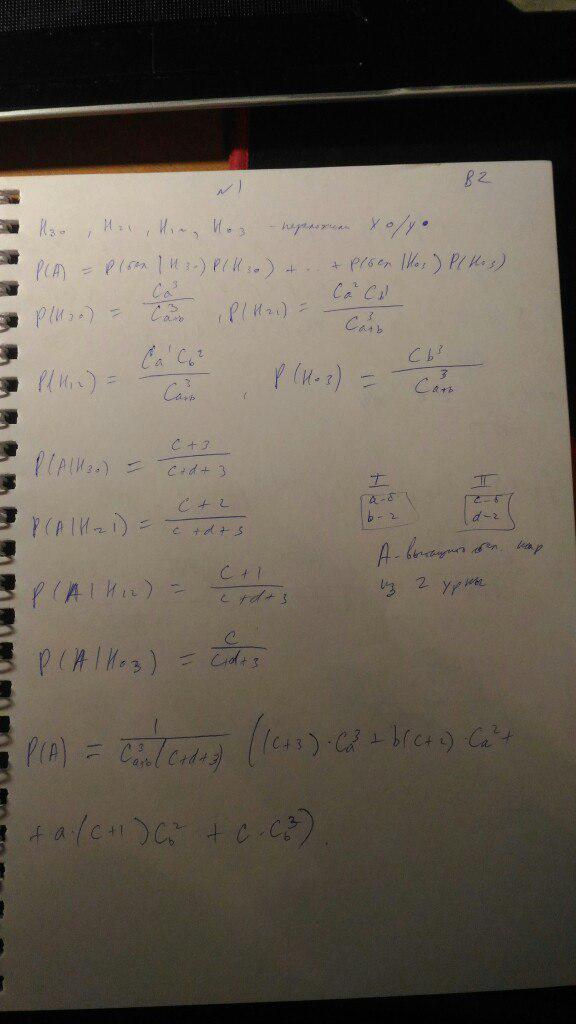 №1 В2
H₃₀, H₂₁, H₁₂, H₀₃ - переложили X○/Y●
P(A) = P(бел | H₃₀) P(H₃₀) + ... + P(бел | H₀₃) P(H₀₃)
P(H₃₀) = Cₐ³ / Cₐ₊ᵦ³, P(H₂₁) = Cₐ² Cb¹ / Cₐ₊b³
P(H₁₂) = Cₐ¹ Cb² / Cₐ₊b³, P(H₀₃) = Cb³ / Cₐ₊b³
P(A|H₃₀) = (c+3) / (c+d+3)
P(A|H₂₁) = (c+2) / (c+d+3)
P(A|H₁₂) = (c+1) / (c+d+3)
P(A|H₀₃) = c / (c+d+3)
I II
a-б c-б
b-ч d-ч
A - вытащить бел. шар
из 2 урны
P(A) = 1 / (Cₐ₊b³ (c+d+3)) ((c+3)·Cₐ³ + b(c+2)·Cₐ² +
+ a·(c+1) Cb² + c·Cb³).